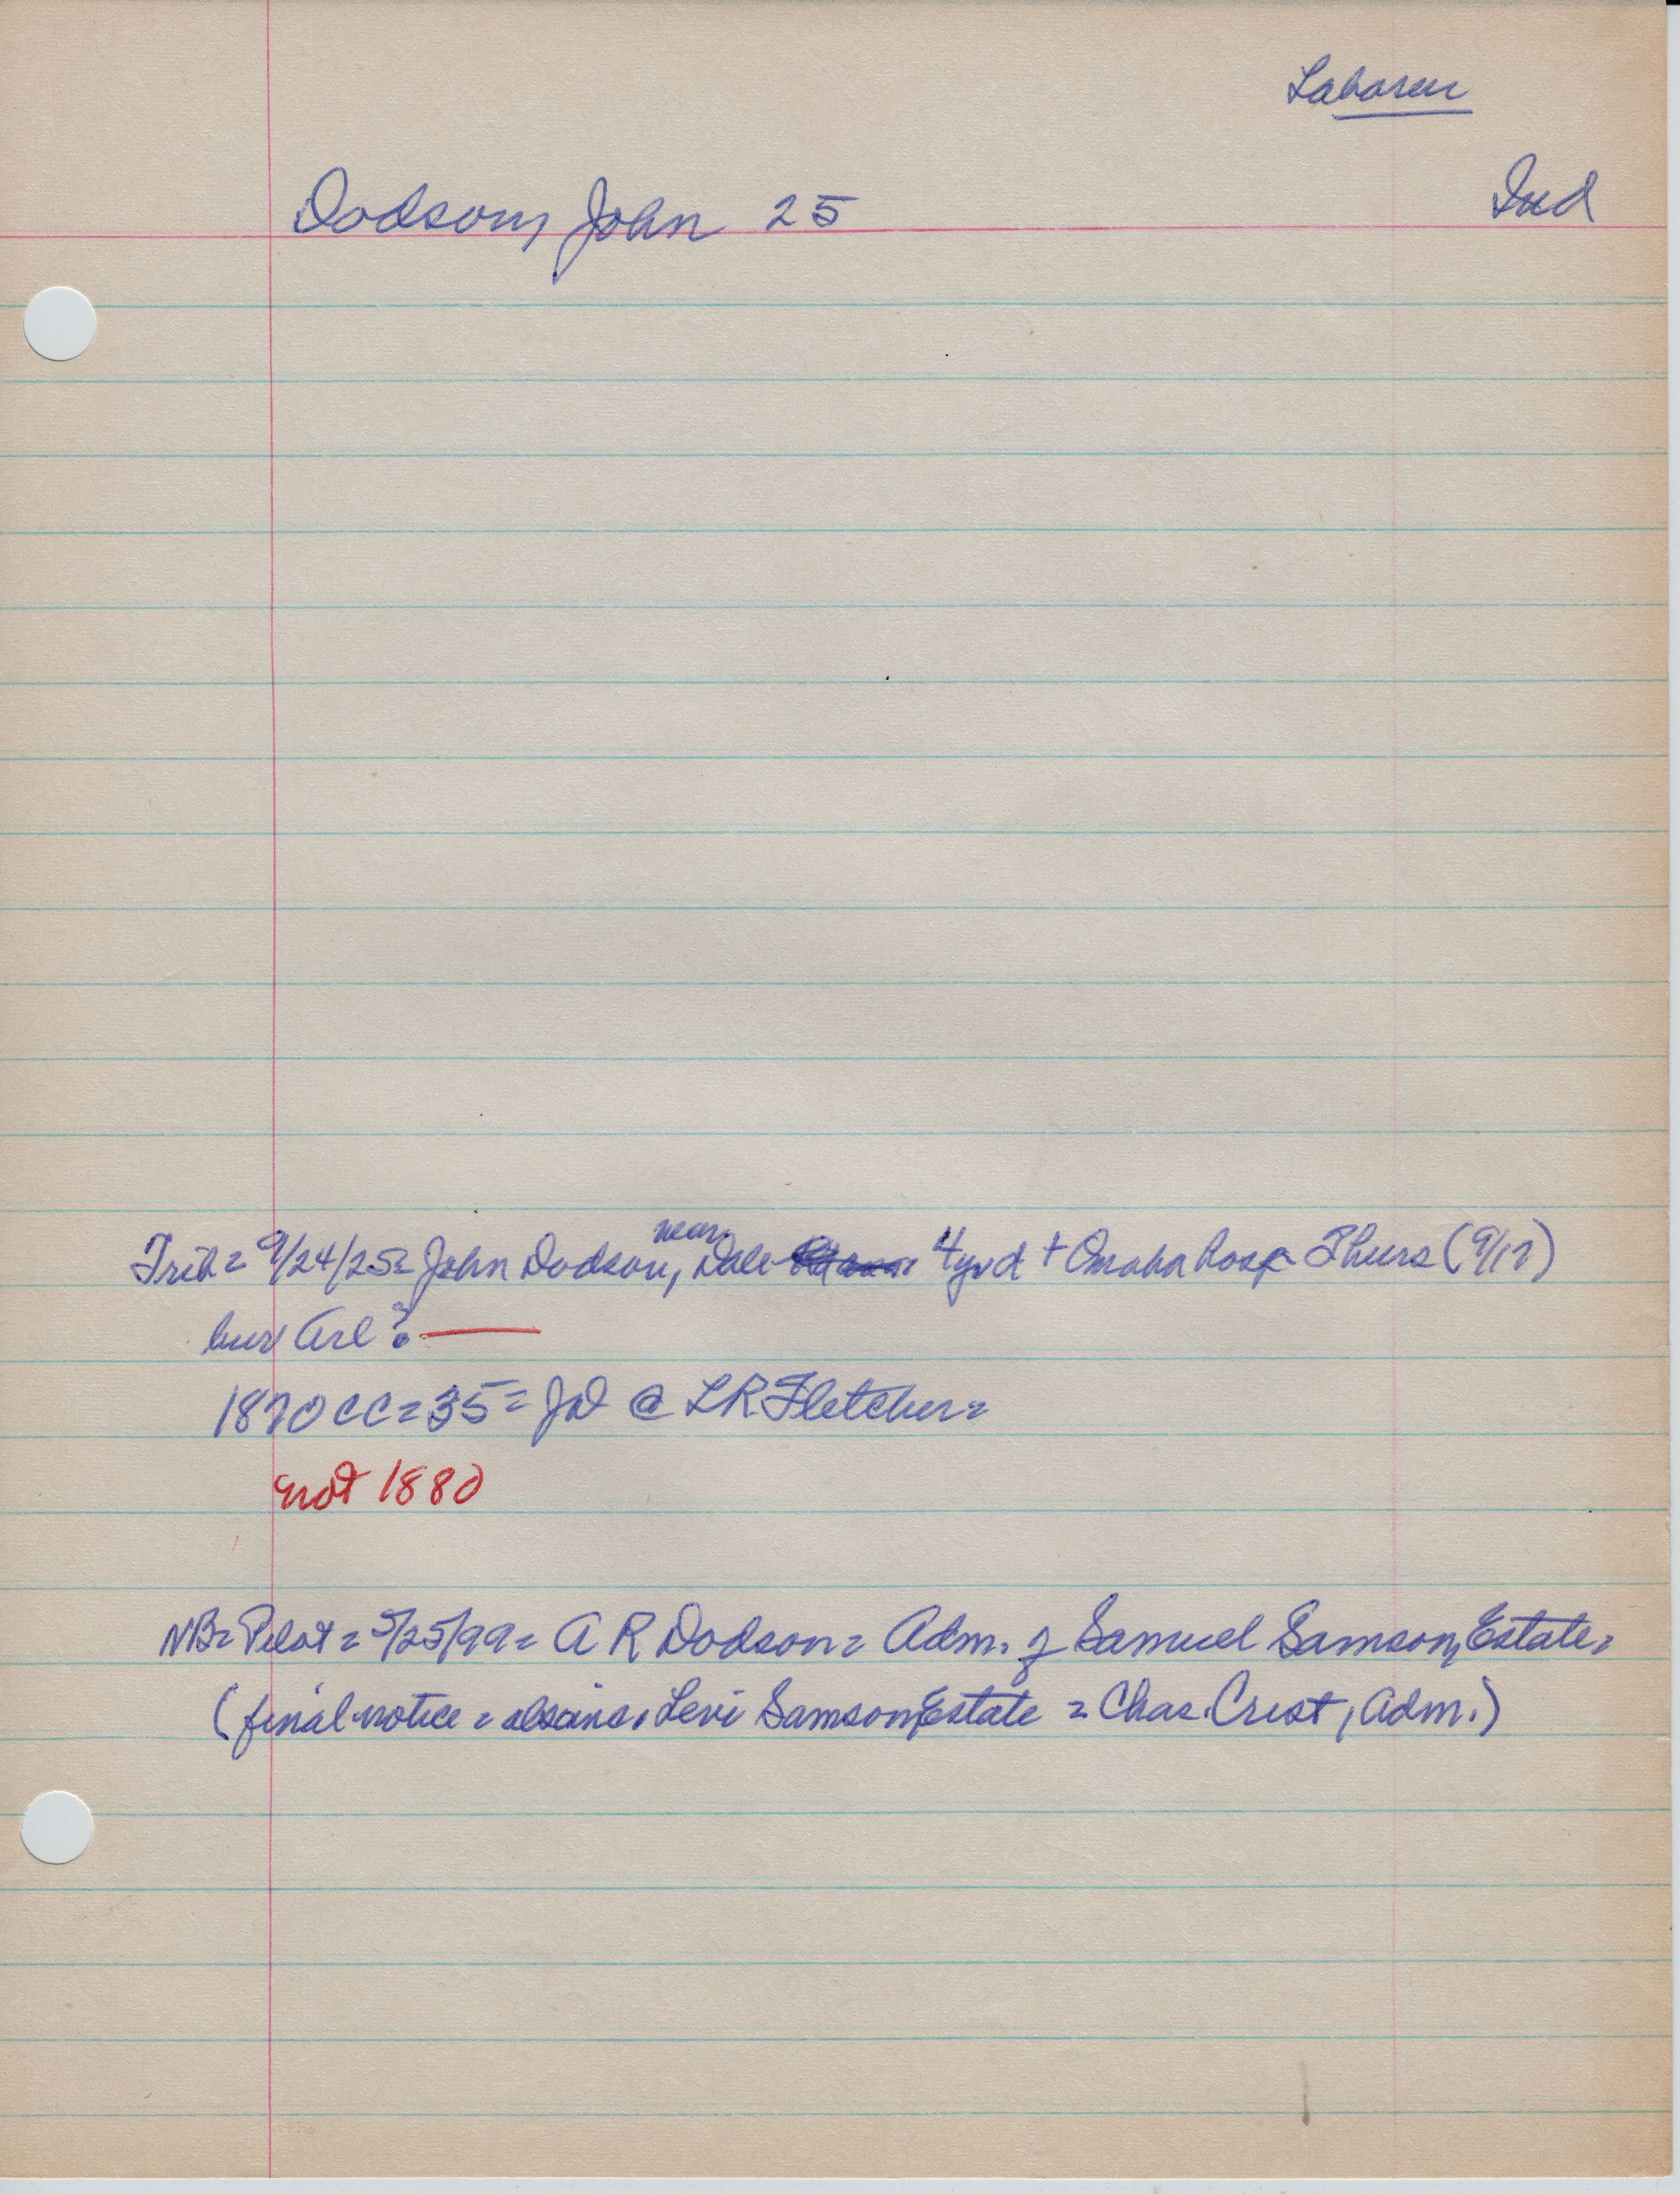 Laborer
Dodson, John 25 Ind
near
Trib = 9/24/25 = John Dodson, Dale 4 yr d + Omaha hosp Thurs (9/17)
bur Arl? —
1870 CC = 35 = JD @ L R Fletcher =
not 1880
NB = Pilot = 5/25/99 = A R Dodson = Adm. of Samuel Samson, Estate =
(final notice = Levi Samson, Estate = Chas. Crist, Adm.)